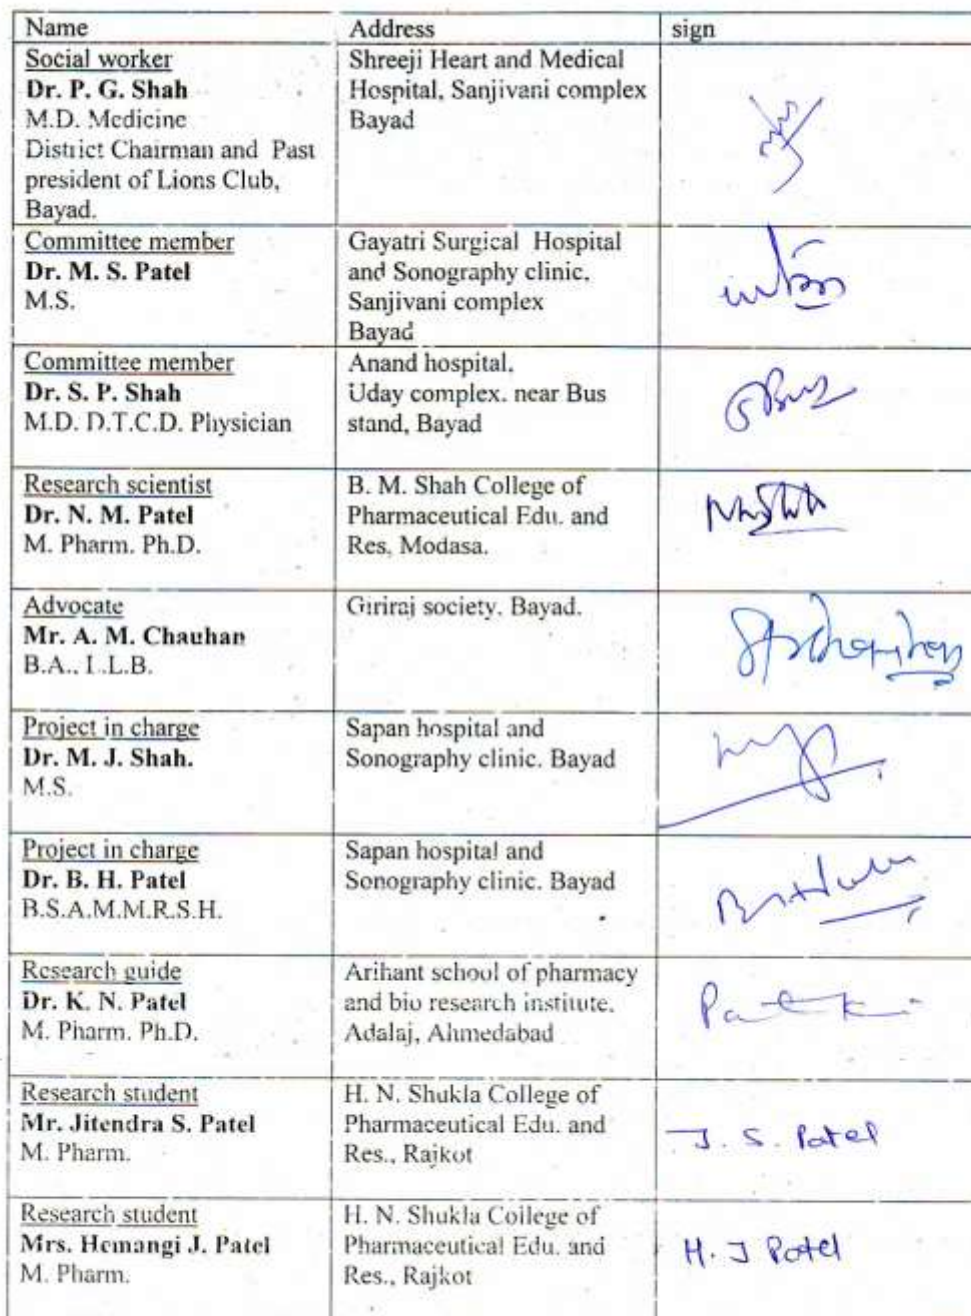 Name
Address
sign
Social worker
Dr. P. G. Shah
M.D. Medicine
District Chairman and Past
president of Lions Club,
Bayad.
Shreeji Heart and Medical
Hospital, Sanjivani complex
Bayad
Committee member
Dr. M. S. Patel
M.S.
Gayatri Surgical Hospital
and Sonography clinic,
Sanjivani complex
Bayad
Committee member
Dr. S. P. Shah
M.D. D.T.C.D. Physician
Anand hospital,
Uday complex. near Bus
stand, Bayad
Research scientist
Dr. N. M. Patel
M. Pharm. Ph.D.
B. M. Shah College of
Pharmaceutical Edu. and
Res, Modasa.
Advocate
Mr. A. M. Chauhan
B.A., L.L.B.
Giriraj society. Bayad.
Project in charge
Dr. M. J. Shah.
M.S.
Sapan hospital and
Sonography clinic. Bayad
Project in charge
Dr. B. H. Patel
B.S.A.M.M.R.S.H.
Sapan hospital and
Sonography clinic. Bayad
Research guide
Dr. K. N. Patel
M. Pharm. Ph.D.
Arihant school of pharmacy
and bio research institute.
Adalaj, Ahmedabad
Research student
Mr. Jitendra S. Patel
M. Pharm.
H. N. Shukla College of
Pharmaceutical Edu. and
Res., Rajkot
J. S. Patel
Research student
Mrs. Hemangi J. Patel
M. Pharm.
H. N. Shukla College of
Pharmaceutical Edu. and
Res., Rajkot
H. J Patel